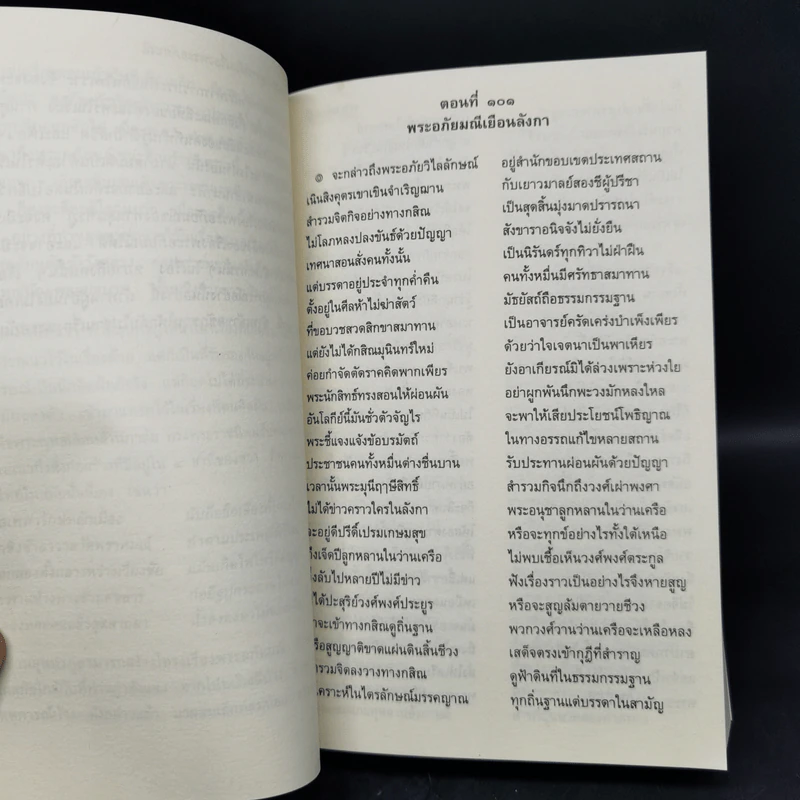 ตอนที่ ๑๐๑
พระอภัยมณีเยือนลังกา
๏ จะกล่าวถึงพระอภัยวิไลลักษณ์ อยู่สำนักขอบเขตประเทศสถาน
เนินสิงคุตรเขาเขินจำเริญฌาน กับเยาวมาลย์สองชีผู้ปรีชา
สำรวมจิตกิจอย่างทางกสิณ เป็นสุดสิ้นมุ่งมาดปรารถนา
ไม่โลภหลงปลงขันธ์ด้วยปัญญา สังขาราอนิจจังไม่ยั่งยืน
เทศนาสอนสั่งคนทั้งนั้น เป็นนิรันดร์ทุกทิวาไม่ฝ่าฝืน
แต่บรรดาอยู่ประจำทุกค่ำคืน คนทั้งหมื่นมีศรัทธาสมาทาน
ตั้งอยู่ในศีลห้าไม่ฆ่าสัตว์ มัธยัสถ์ถือธรรมกรรมฐาน
ที่ขอบวชสวดสิกขาสมาทาน เป็นอาจารย์ครัดเคร่งบำเพ็งเพียร
แต่ยังไม่ได้กสิณมุนินทร์ใหม่ ด้วยว่าใจเจตนาเป็นพาเหียร
ค่อยกำจัดตัดราคคิดพากเพียร ยังอาเกียรณ์มิได้ล่วงเพราะห่วงใย
พระนักสิทธ์ทรงสอนให้ผ่อนผัน อย่าผูกพันนึกพะวงมักหลงใหล
อันโลกีย์นี้มันชั่วตัวจัญไร จะพาให้เสียประโยชน์โพธิญาณ
พระชี้แจงแจ้งข้อบรมัตถ์ ในทางอรรถแก้ไขหลายสถาน
ประชาชนคนทั้งหมื่นต่างชื่นบาน รับประทานผ่อนผันด้วยปัญญา
เวลานั้นพระมุนีฤๅษีสิทธิ์ สำรวมกิจนึกถึงวงศ์เผ่าพงศา
ไม่ได้ข่าวคราวใครในลังกา พระอนุชาลูกหลานในว่านเครือ
จะอยู่ดีปรีดิ์เปรมเกษมสุข หรือจะทุกข์อย่างไรทั้งใต้เหนือ
ถึงเจ็ดปีลูกหลานในว่านเครือ ไม่พบเชื้อเห็นวงศ์พงศ์ตระกูล
ลับไปหลายปีไม่มีข่าว ฟังเรื่องราวเป็นอย่างไรจึงหายสูญ
ได้ปะสุริย์วงศ์พงศ์ประยูร หรือจะสูญล้มตายวายชีวง
จะเข้าทางกสิณดูถิ่นฐาน พวกวงศ์วานว่านเครือจะเหลือหลง
สูญญาติขาดแผ่นดินสิ้นชีวง เสด็จตรงเข้ากุฎีที่สำราญ
รวมจิตลงวางทางกสิณ ดูฟ้าดินที่ในธรรมกรรมฐาน
เคราะห์ในไตรลักษณ์มรรคญาณ ทุกถิ่นฐานแต่บรรดาในสามัญ